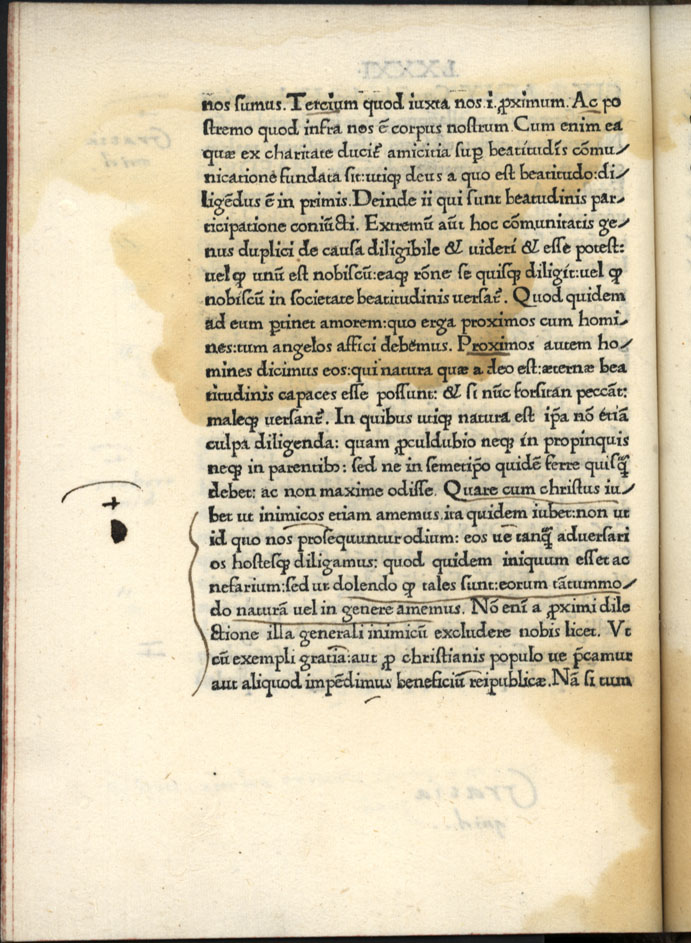 nos sumus. Tercium quod iuxta nos .i. ꝓximum. Ac po
stremo quod infra nos ē corpus nostrum. Cum enim ea
quæ ex charitate duciť amicitia suꝑ beatitudīs cōmu⸗
nicatione fundata sit: utiqꝫ deus a quo est beatitudo: di⸗
ligēdus ē in primis. Deinde ii qui sunt beatudinis par⸗
ticipatione coniūcti. Extremū aūt hoc cōmunitatis ge⸗
nus duplici de causa diligibile & uideri & esse potest:
uel ꝙ unū est nobiscū: eaqꝫ rōne se quisqꝫ diligit: uel ꝙ
nobiscū in societate beatitudinis uersať. Quod quidem
ad eum ꝑtinet amorem: quo erga proximos cum homi⸗
nes: tum angelos affici debēmus. Proximos autem ho⸗
mines dicimus eos: qui natura quæ a deo est: æternæ bea
titudinis capaces esse possunt: & si nūc forsitan peccāt:
maleqꝫ uersanť. In quibus utiqꝫ natura est ip̄a nō etiā
culpa diligenda: quam ꝓculdubio neqꝫ in propinquis
neqꝫ in parentibꝰ: sed ne in semetip̄o quidē ferre quisq̄
debet: ac non maxime odisse. Quare cum christus iu⸗
bet ut inimicos etiam amemus. ita quidem iubet: non ut
id quo nos prosequuntur odium: eos ue tanq̄ aduersari
os hostesqꝫ diligamus: quod quidem iniquum esset ac
nefarium: sed ut dolendo ꝙ tales sunt: eorum tātummo⸗
do naturā uel in genere amemus. Nō enī a ꝓximi dile
ctione illa generali inimicū excludere nobis licet. Vt
cū exempli gratia: aut ꝓ christianis populo ue p̄camur
aut aliquod impēdimus beneficiū reipublicæ. Nā si tum